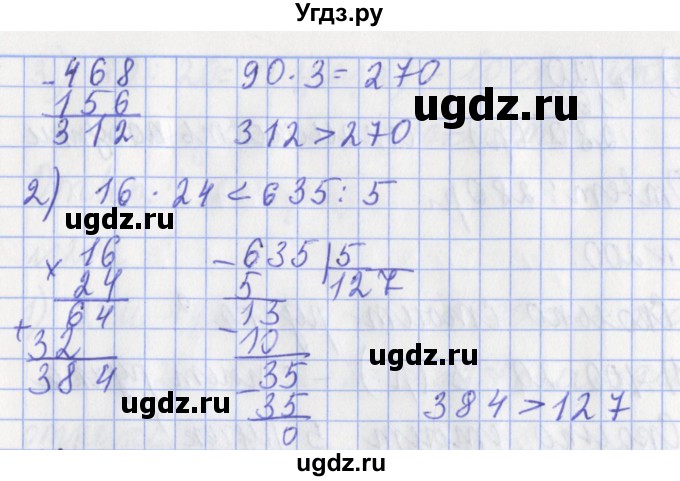 Угдз.ру
- 468 90 · 3 = 270
156
312 312 > 270
ugdz.ru
2) 16 · 24 < 635 : 5
ugdz.ru
× 16 - 635 | 5
24 5 127
64 13
+ 32 - 10
384 35
ugdz.ru
- 35 384 > 127
ugdz.ru
0
ugdz.ru
ugdz.ru